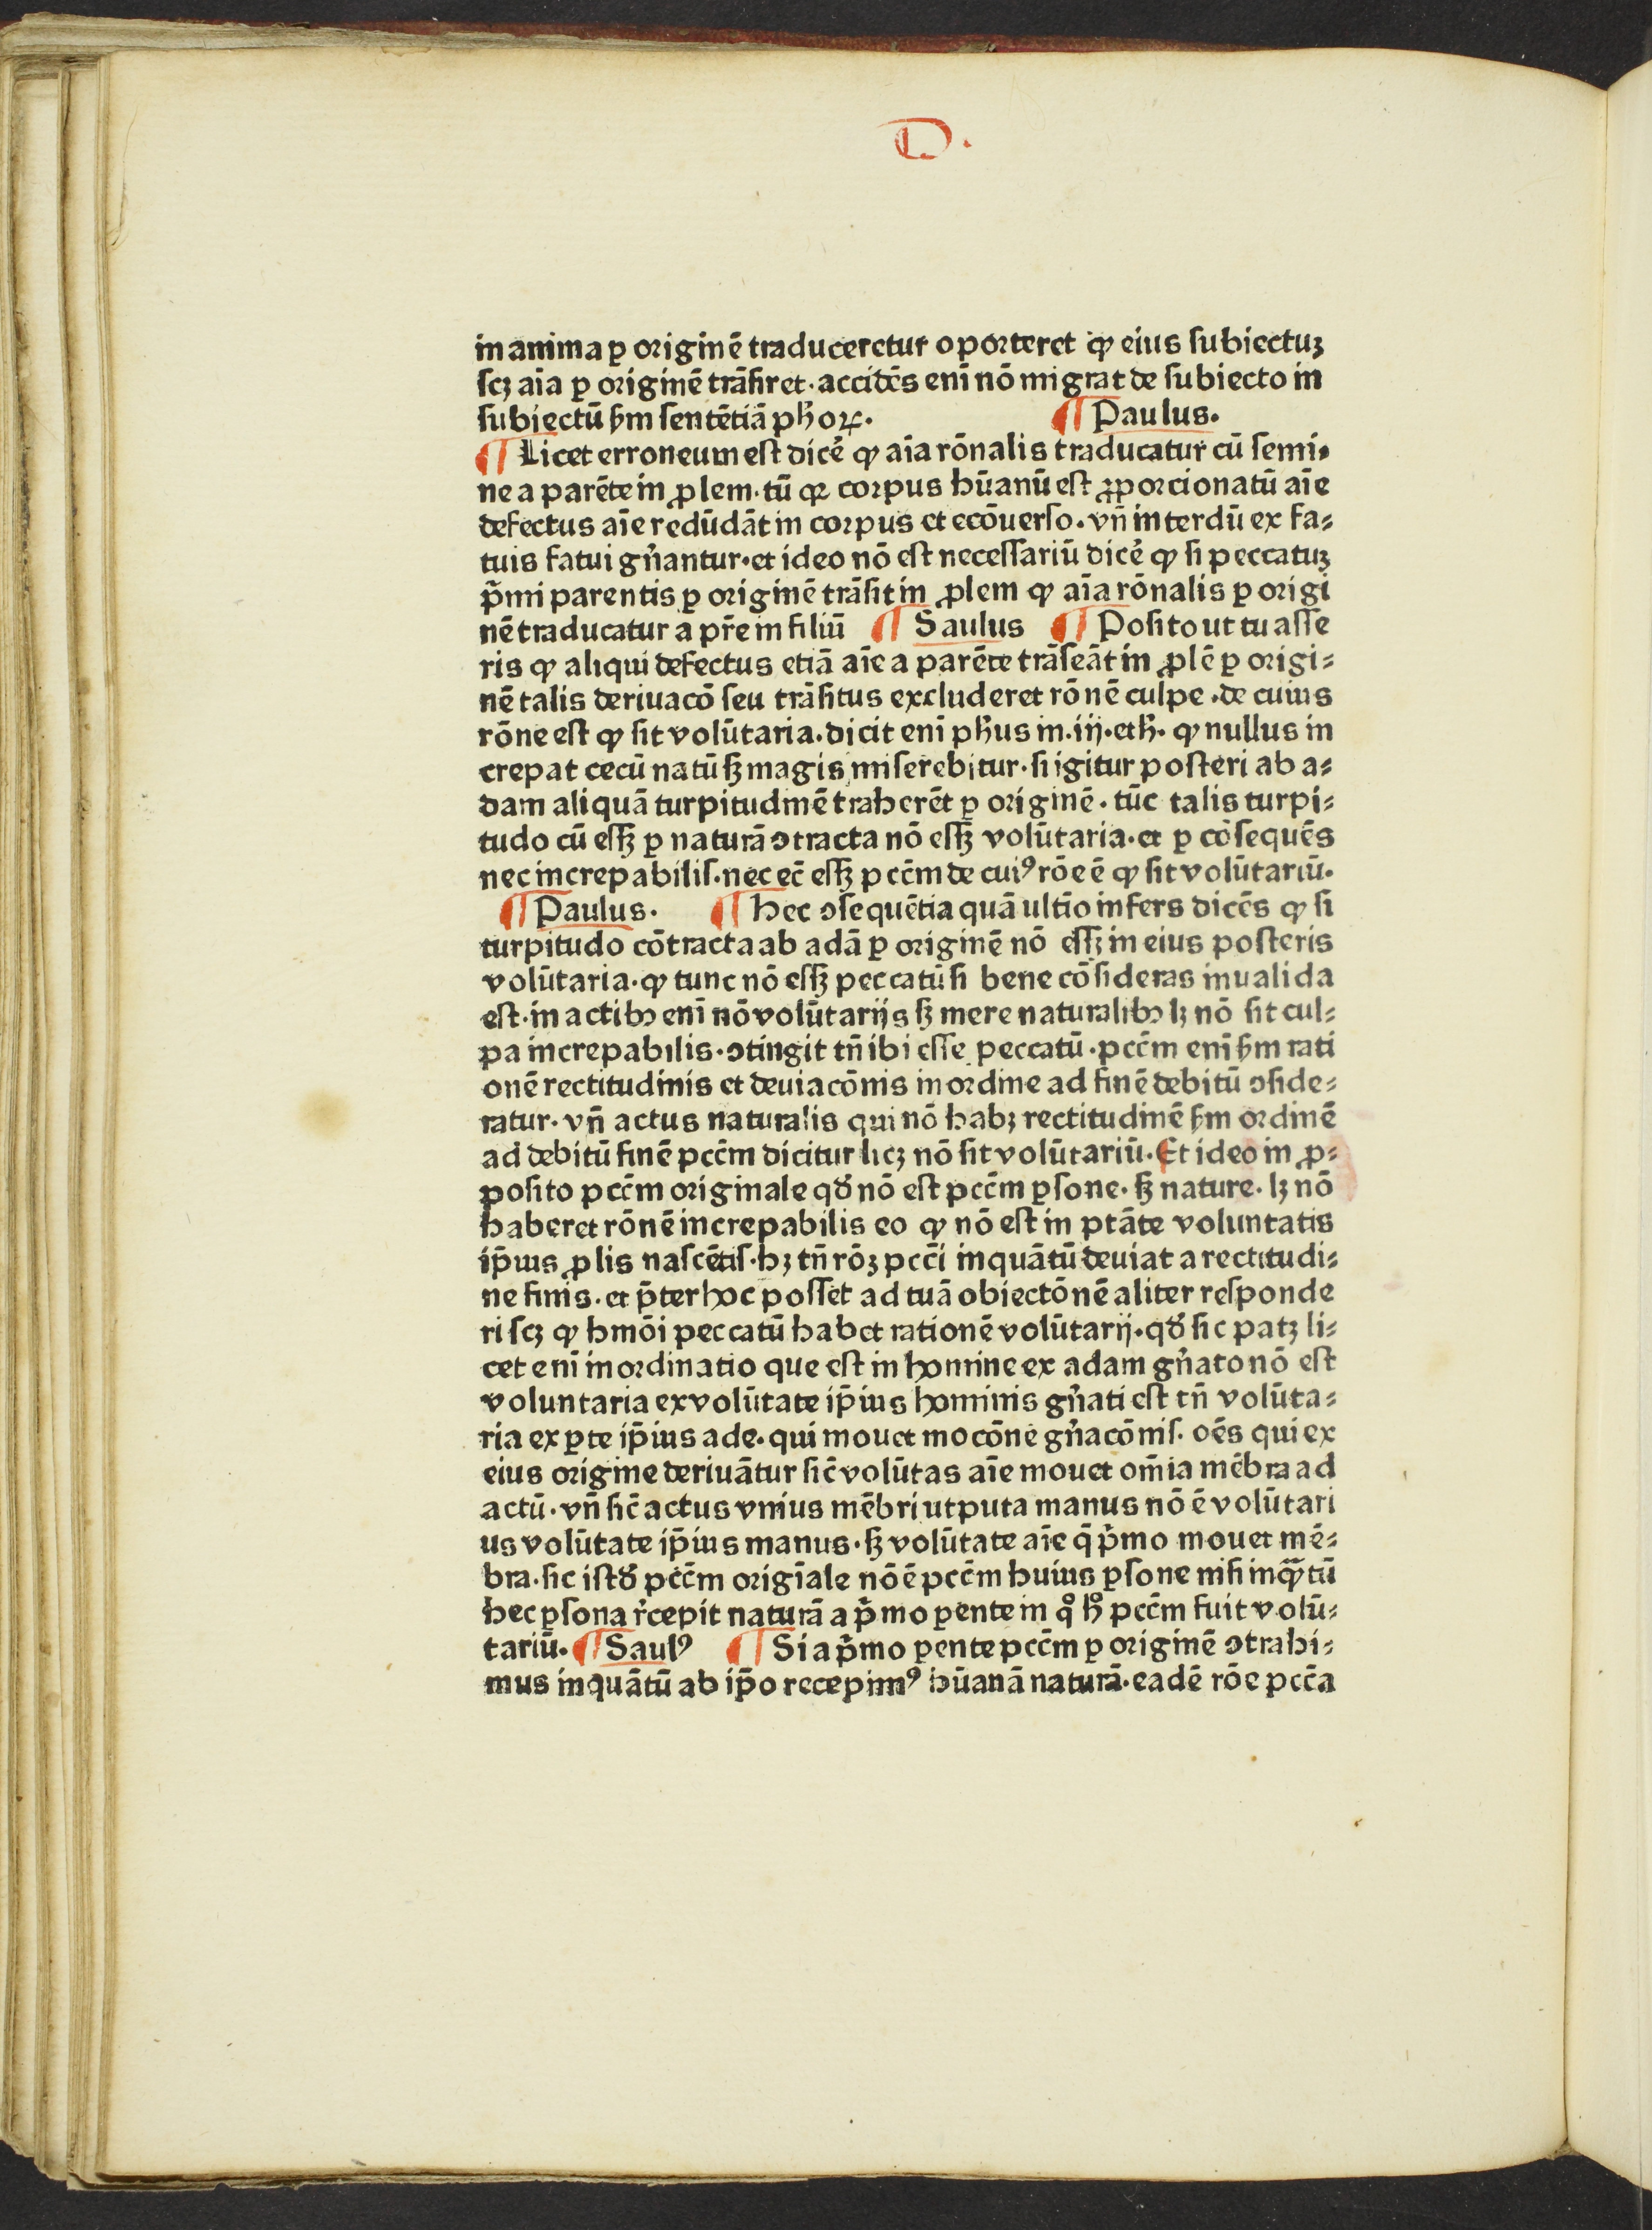 D.
in anima ꝑ originē traduceretur oporteret ꝙ eius subiectuꝫ
scꝫ aīa ꝑ originē trāsiret·accidēs enī nō migrat de subiecto in
subiectū ẜm sentētiā pħoꝝ. ¶ Paulus.
¶ Licet erroneum est dicẻ ꝙ aīa rōnalis traducatur cū semi⸗
ne a parēte in ꝓlem·tū qꝛ corpus hūanū est ꝓporcionatū aīe
defectus aīe redūdāt in corpus et ecōuerso.vn̄ interdū ex fa⸗
tuis fatui gn̄antur.et ideo nō est necessariū dicẻ ꝙ si peccatuꝫ
p̄mi parentis ꝑ originē trāsit in ꝓlem ꝙ aīa rōnalis ꝑ origi
nē traducatur a pr̄e in filiū ¶ Saulus ¶ Posito ut tu asse
ris ꝙ aliqui defectus etiā aīe a parēte trāseāt in ꝓlē ꝑ origi⸗
nē talis deriuacō seu trāsitus excluderet rōnē culpe.de cuius
rōne est ꝙ sit volūtaria.dicit enī pħus in.iij.etħ. ꝙ nullus in
crepat cecū natū sꝫ magis miserebitur·si igitur posteri ab a⸗
dam aliquā turpitudinē traherēt ꝑ originē·tūc talis turpi⸗
tudo cū essꝫ ꝑ naturā ↄtracta nō essꝫ volūtaria·et ꝑ cōsequēs
nec increpabilis·nec ec̄ essꝫ pcc̄m de cuiꝰ rōe ē ꝙ sit volūtariū.
¶ Paulus. ¶ Hec ↄsequētia quā ultīo infers dicēs ꝙ si
turpitudo cōtracta ab adā ꝑ originē nō essꝫ in eius posteris
volūtaria·ꝙ tunc nō essꝫ peccatū si bene cōsideras inualida
est·in actibꝫ enī nō volūtarijs sꝫ mere naturalibꝫ lꝫ nō sit cul⸗
pa increpabilis·ↄtingit tn̄ ibi esse peccatū·pcc̄m enī ẜm rati
onē rectitudinis et deuiacōnis in ordine ad finē debitū ↄside⸗
ratur·vn̄ actus naturalis qui nō habꝫ rectitudinē ẜm ordinē
ad debitū finē pcc̄m dicitur licꝫ nō sit volūtariū.Et ideo in ꝓ⸗
posito pcc̄m originale qđ nō est pcc̄m ꝑsone·sꝫ nature·lꝫ nō
haberet rōnē increpabilis eo ꝙ nō est in ptāte voluntatis
ip̄ius ꝓlis nascētis·hꝫ tn̄ rōꝫ pcc̄i inquātū deuiat a rectitudi⸗
ne finis·et p̄ter hoc posset ad tuā obiectōnē aliter responde
ri scꝫ ꝙ hmōi peccatū habet rationē volūtarij.qđ sic patꝫ li⸗
cet enī inordinatio que est in homine ex adam gn̄ato nō est
voluntaria ex volūtate ip̄ius hominis gn̄ati est tn̄ volūta⸗
ria ex ꝑte ip̄ius ade.qui mouet mocōne gn̄acōnis·oēs qui ex
eius origine deriuātur sic̄ volūtas aīe mouet om̄ia mēbra ad
actū·vn̄ sic̄ actus vnius mēbri utputa manus nō ē volūtari
us volūtate ip̄ius manus·sꝫ volūtate aīe q̄ p̄mo mouet mē⸗
bra·sic istđ pcc̄m origīale nō ē pcc̄m huius ꝑsone nisi inqᷓtū
hec ꝑsona r̄cepit naturā a p̄mo ꝑente in qͦ hͦ pcc̄m fuit volū⸗
tariū. ¶ Saulꝰ ¶ Si a p̄mo ꝑente pcc̄m ꝑ originē ↄtrahi⸗
mus inquātū ab ip̄o recepimꝰ hūanā naturā·eadē rōe pcc̄a